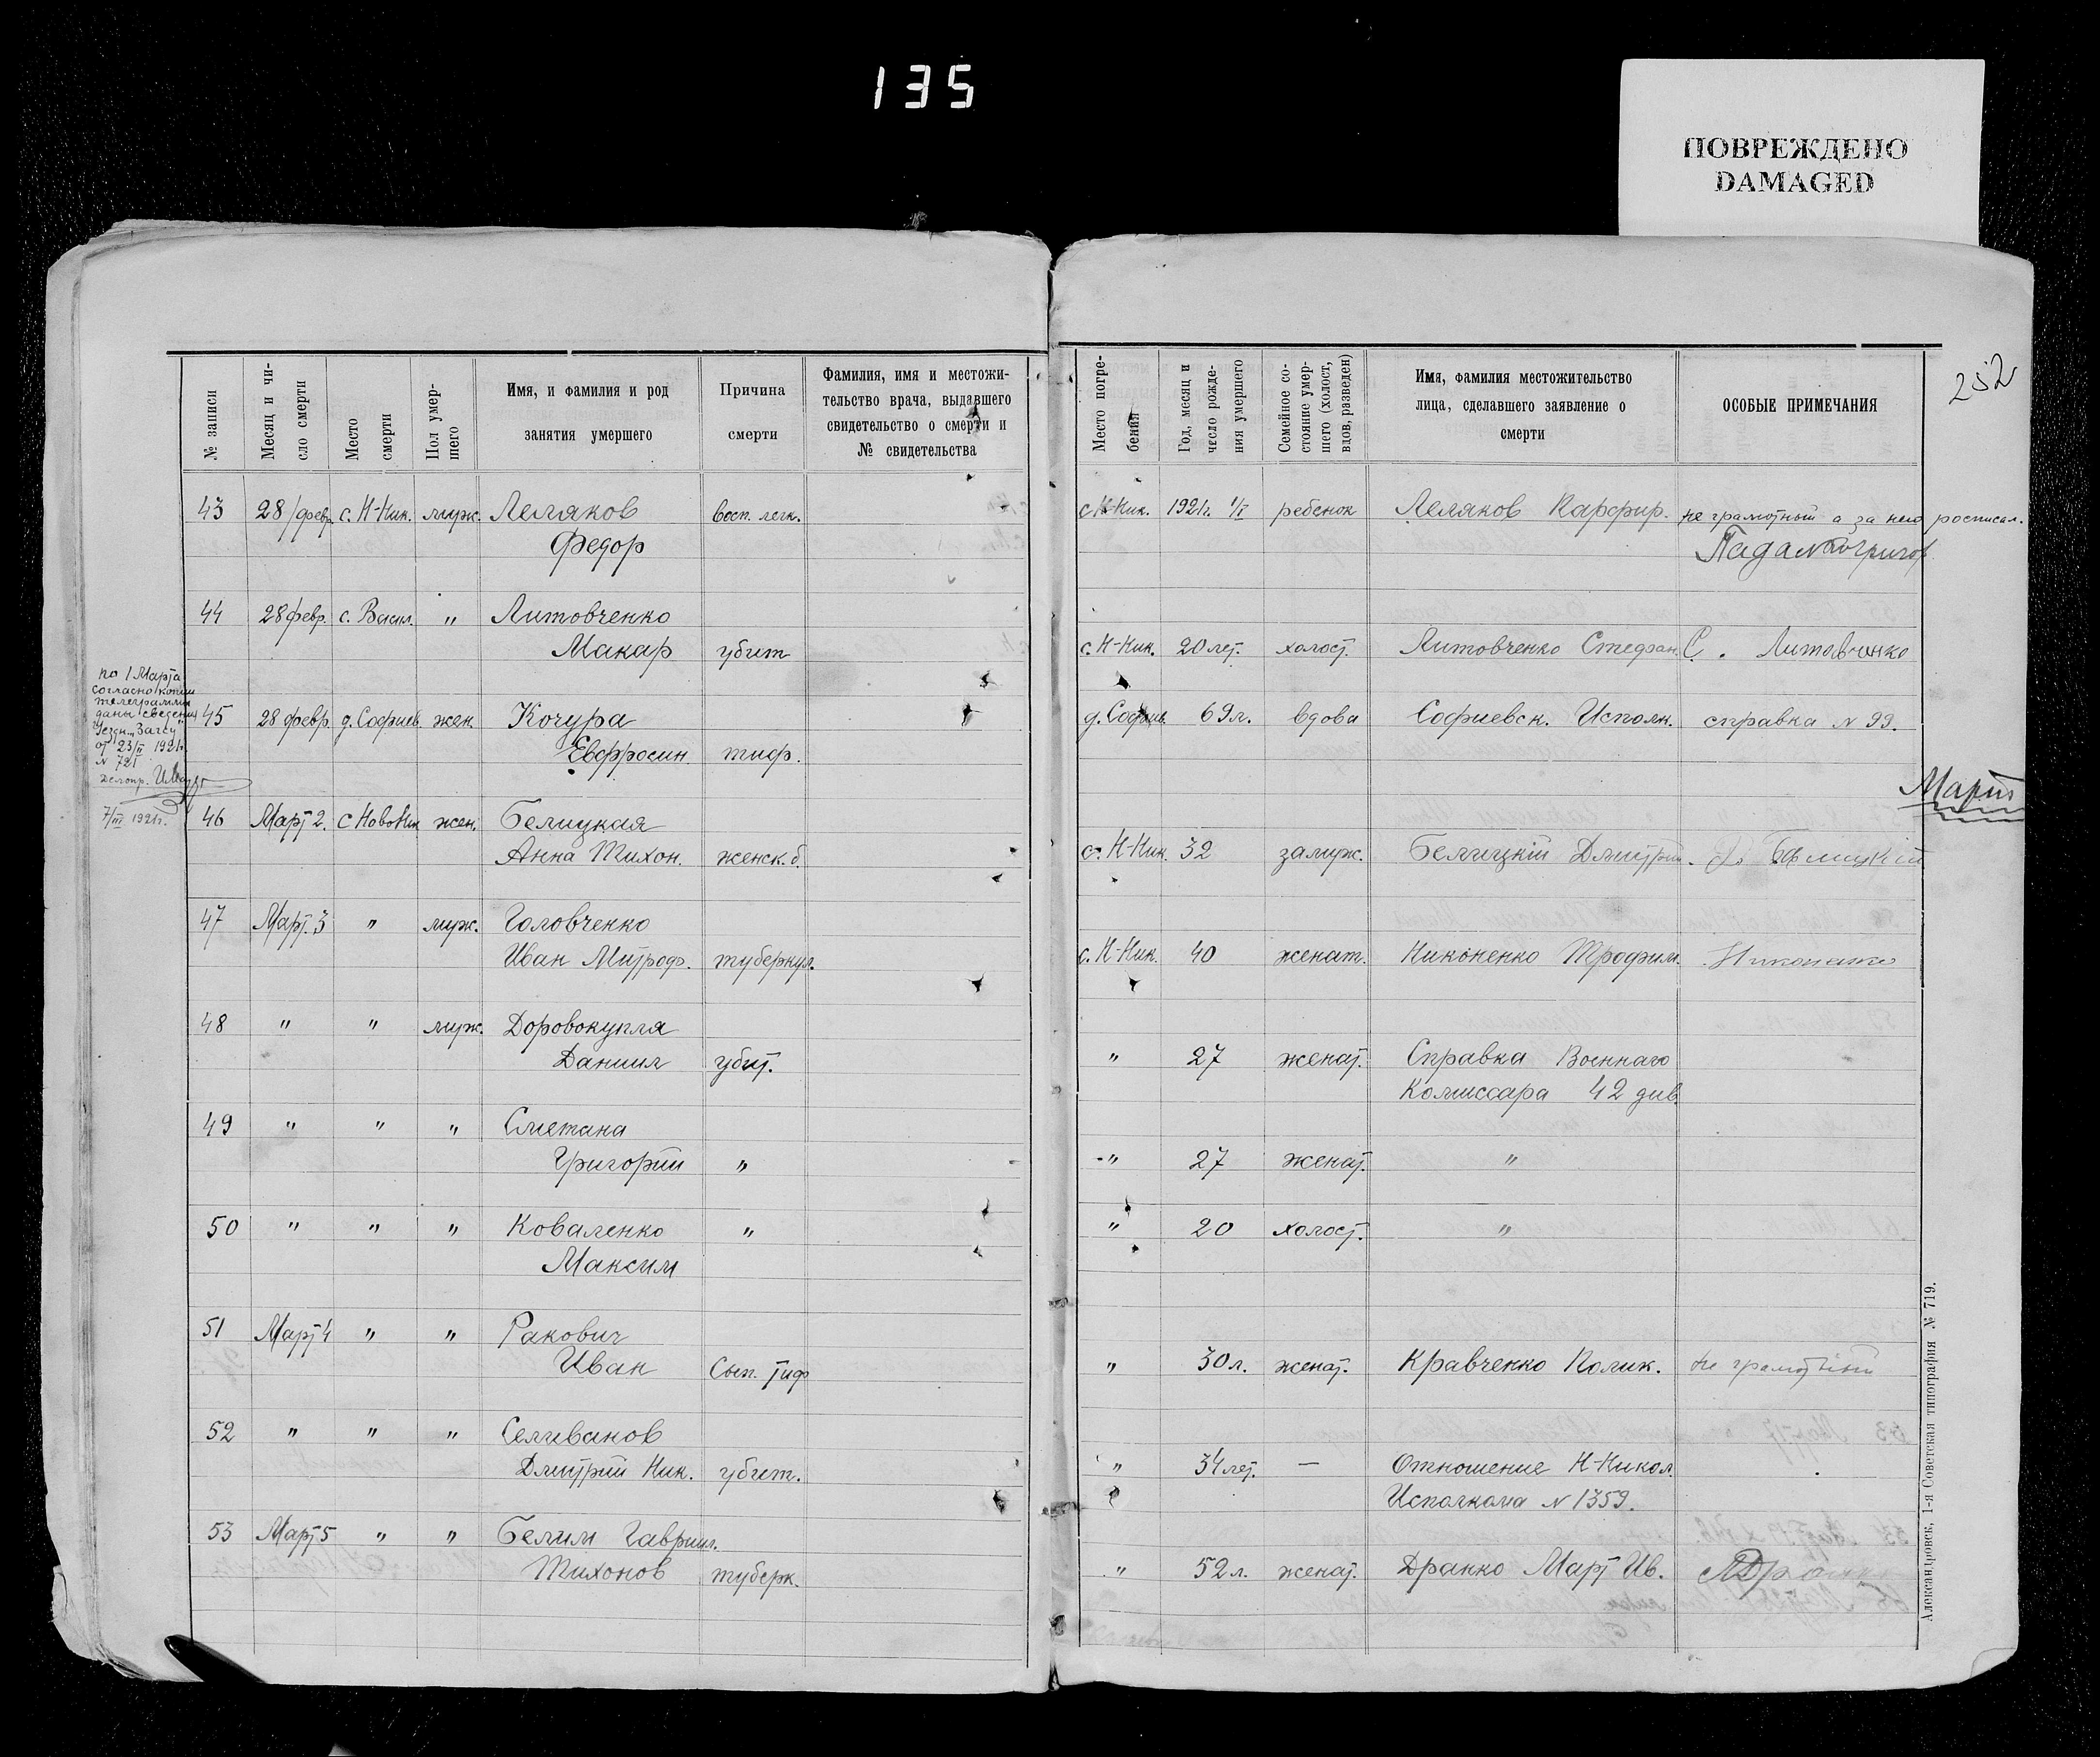 135
ПОВРЕЖДЕНО
DAMAGED
252
№ записи
Месяц и число смерти
Место смерти
Пол умершего
Имя, и фамилия и род занятия умершего
Причина смерти
Фамилия, имя и местожительство врача, выдавшего свидетельство о смерти и № свидетельства
Место погребения
Год, месяц и число рождения умершего
Семейное состояние умершего (холост, вдов, разведен)
Имя, фамилия местожительство лица, сделавшего заявление о смерти
ОСОБЫЕ ПРИМЕЧАНИЯ
43 28/февр. с. Н-Ник. муж. Леляков восп. легк. с Н-Ник. 1921г. 1/I ребенок Леляков Парфир. не грамотный а за него росписал.
Федор
44 28 февр. с. Васил. " Литовченко
Макар убит с. Н-Ник. 20 лет. холост. Литовченко Стефан. С. Литовченко
по 1 Марта
согласно копии
телеграммы
даны сведения
Уездн. Загсу
от 23/II 1921г.
N 721
делопр.
7/III 1921г.
45 28 февр. д. Софиев. жен. Кочура д. Софиев. 69 л. вдова Софиевск. Исполк. справка N 99.
Евфросин. тиф.
Март
46 Март 2. с НовоНик жен. Белицкая
Анна Тихон. женск. б. с. Н-Ник. 32 замуж. Белицкій Дмитрий.
47 Март. 3 " муж. Головченко
Иван Митроф. туберкул. с. Н-Ник. 40 женат. Никоненко Трофим. Никоненко
48 " " муж. Доровокупля
Даниил убит. " 27 женат. Справка Военнаго
Комиссара 42 див.
49 " " " Сметана
Григорий " " 27 женат. "
50 " " " Коваленко " " 20 холост. "
Максим
51 Март 4 " " Ракович
Иван Сып. тиф " 30 л. женат. Кравченко Полик. не грамотный
52 " " " Селиванов
Дмитрий Ник. убит. " 34 лет. — Отношение Н-Никол.
" Исполкома N 1359.
53 Март 5 " " Белим Гавриил.
Тихонов туберк. " 52 л. женат. Дранко Март Ив.
Александровск, 1-я Советская типография № 719.